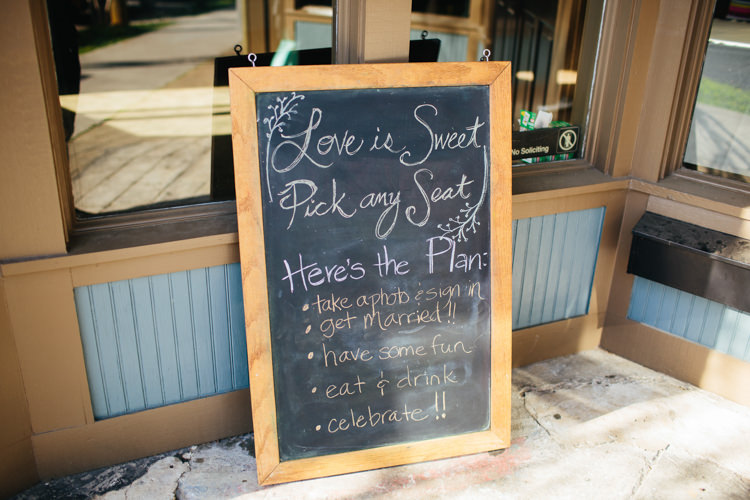 Love is Sweet
Pick any Seat
Here's the Plan:
• take a photo & sign in
• get married!!
• have some fun
• eat & drink
• celebrate!!
No Soliciting